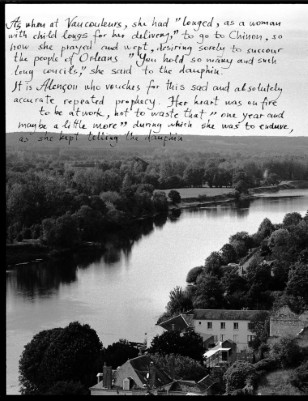 As when at Vaucouleurs, she had "longed, as a woman
with child longs for her delivery," to go to Chinon, so
now she prayed and wept, desiring sorely to succour
the people of Orleans. "You hold so many and such
long councils," she said to the dauphin.
It is Alençon who vouches for this sad and absolutely
accurate repeated prophecy. Her heart was on fire
to be at work, not to waste that "one year and
maybe a little more" during which she was to endure,
as she kept telling the dauphin